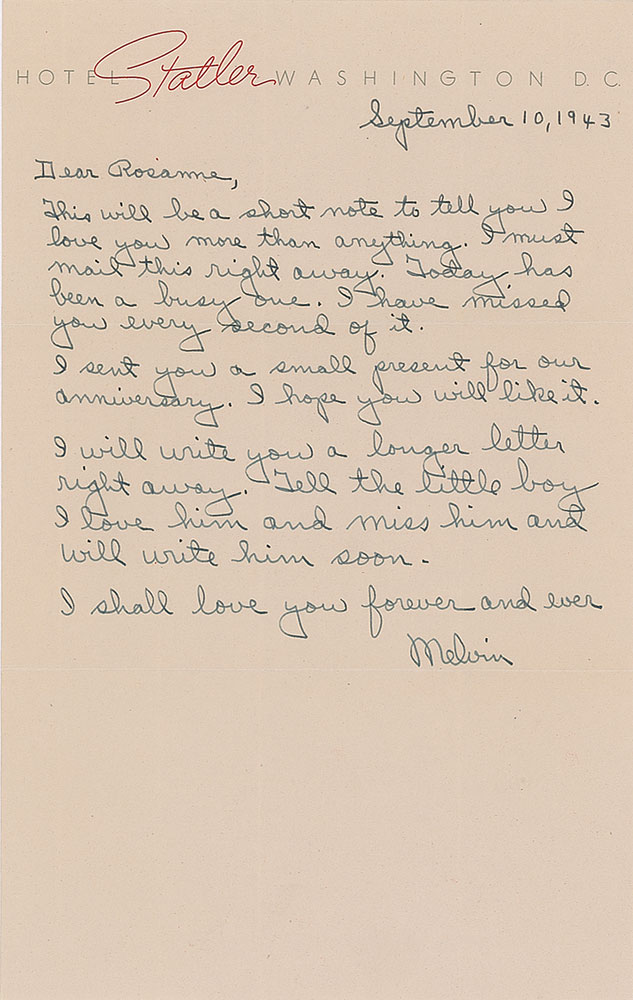 HOTEL Statler WASHINGTON D.C.
September 10, 1943
Dear Rosanne,
This will be a short note to tell you I
love you more than anything. I must
mail this right away. Today has
been a busy one. I have missed
you every second of it.
I sent you a small present for our
anniversary. I hope you will like it.
I will write you a longer letter
right away. Tell the little boy
I love him and miss him and
will write him soon.
I shall love you forever and ever
Melvin